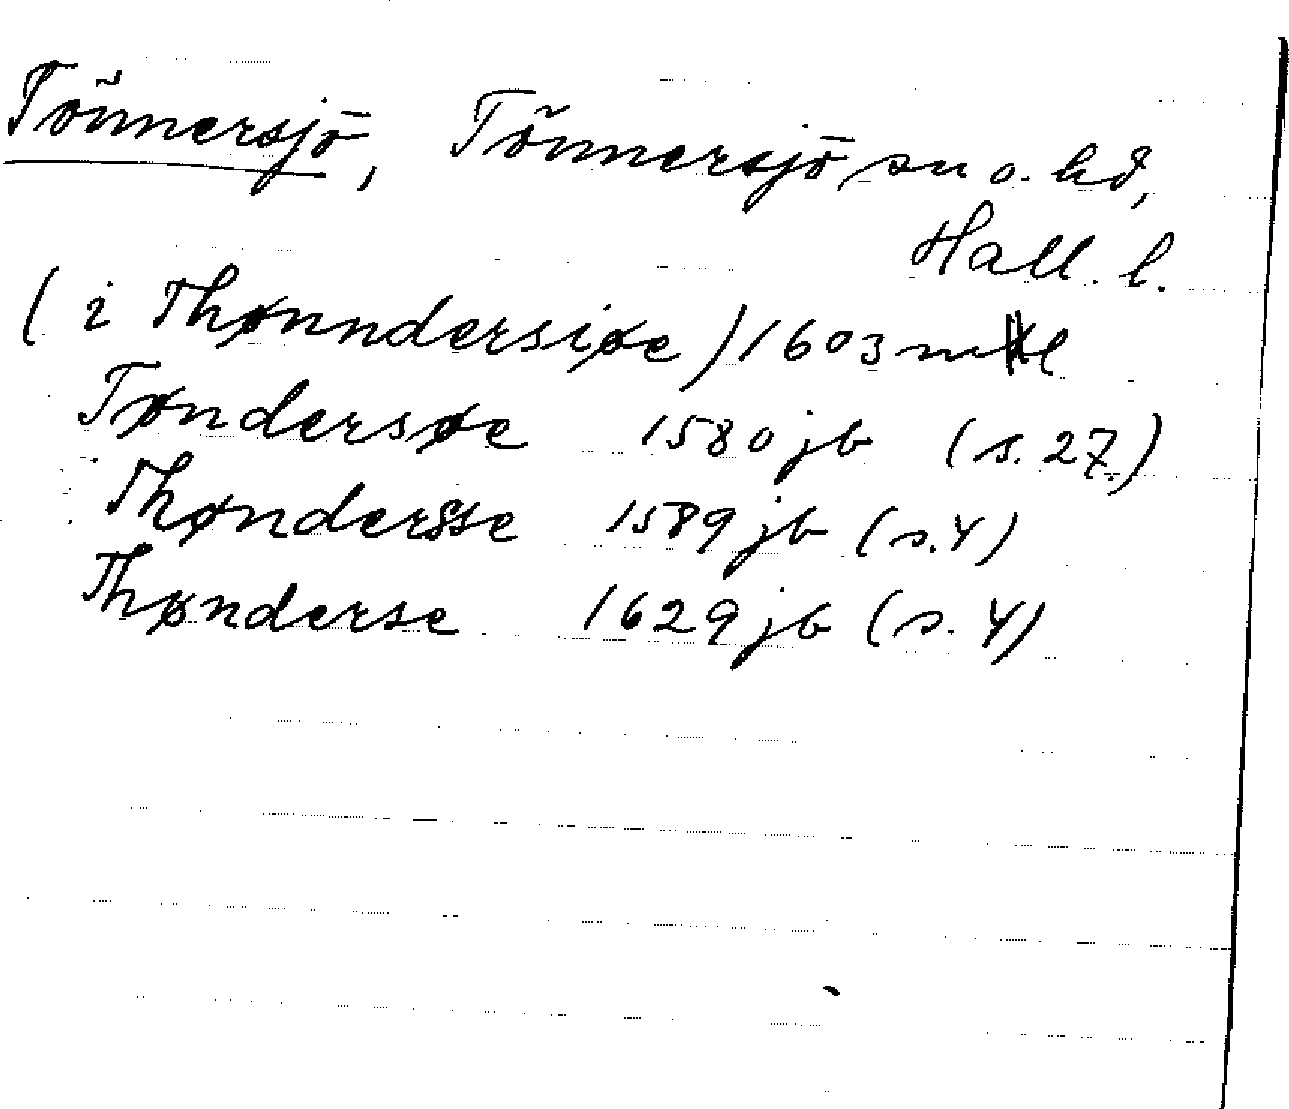 Tönnersjö, Tönnersjö sn o. hd,
Hall. l.
(i Thønndersiøe) 1603 mtl
Tøndersøe 1580 jb (s. 27)
Thøndersse 1589 jb (s. 4)
Thønderse 1629 jb (s. 4)